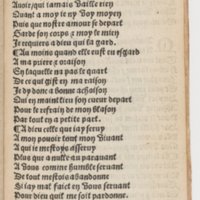 Avoir/qui iamais vaille rien
Quant a moy ie ny voy moyen
Puis que nostre amour se depart
Garde son corps & moy le mien
Je requiers a dieu qui la gard.
Au moins quand elle eust eu esgard
A ma priere & raison
En laquelle na pas le quart
De ce qui gist en ma raison
Je dy donc a bonne achoison
Qui en maint lieu son cueur depart
Pour le refrain de mon blason
Par tout en a petite part.
A dieu celle que iay seruy
A mon pouoir tout mon viuant
A qui ie mestoye asseruy
Plus que a nulle au parauant
A vous comme humble seruant
De tout mestois abandonne
Si iay mal faict en vous seruant
Pour dieu quil me soit pardonne.